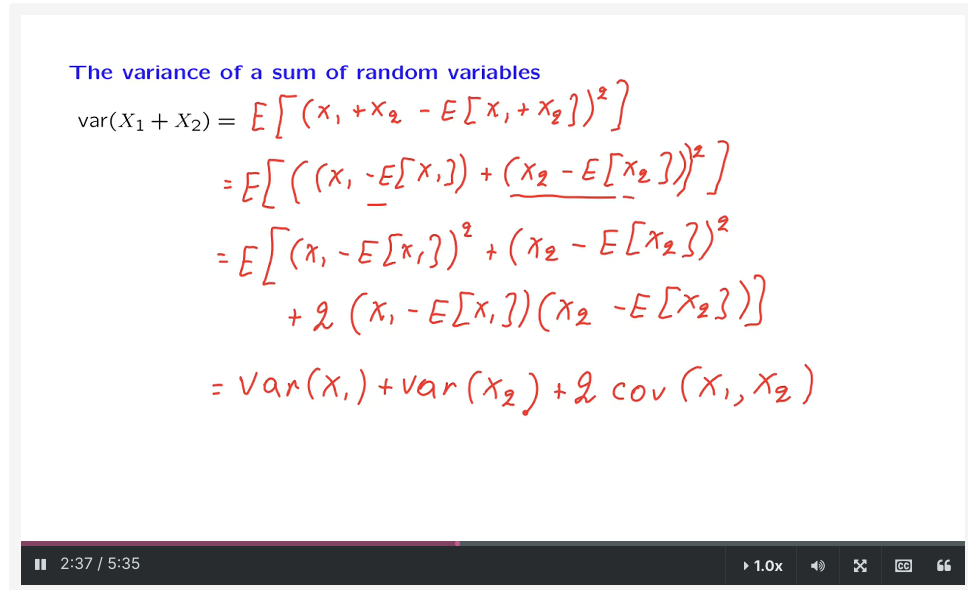 The variance of a sum of random variables
var(X₁ + X₂) = E[(X₁ + X₂ - E[X₁ + X₂])²]
= E[((X₁ - E[X₁]) + (X₂ - E[X₂]))²]
= E[(X₁ - E[X₁])² + (X₂ - E[X₂])²
+ 2 (X₁ - E[X₁])(X₂ - E[X₂])]
= var(X₁) + var(X₂) + 2 cov(X₁, X₂)
2:37 / 5:35
1.0x
CC